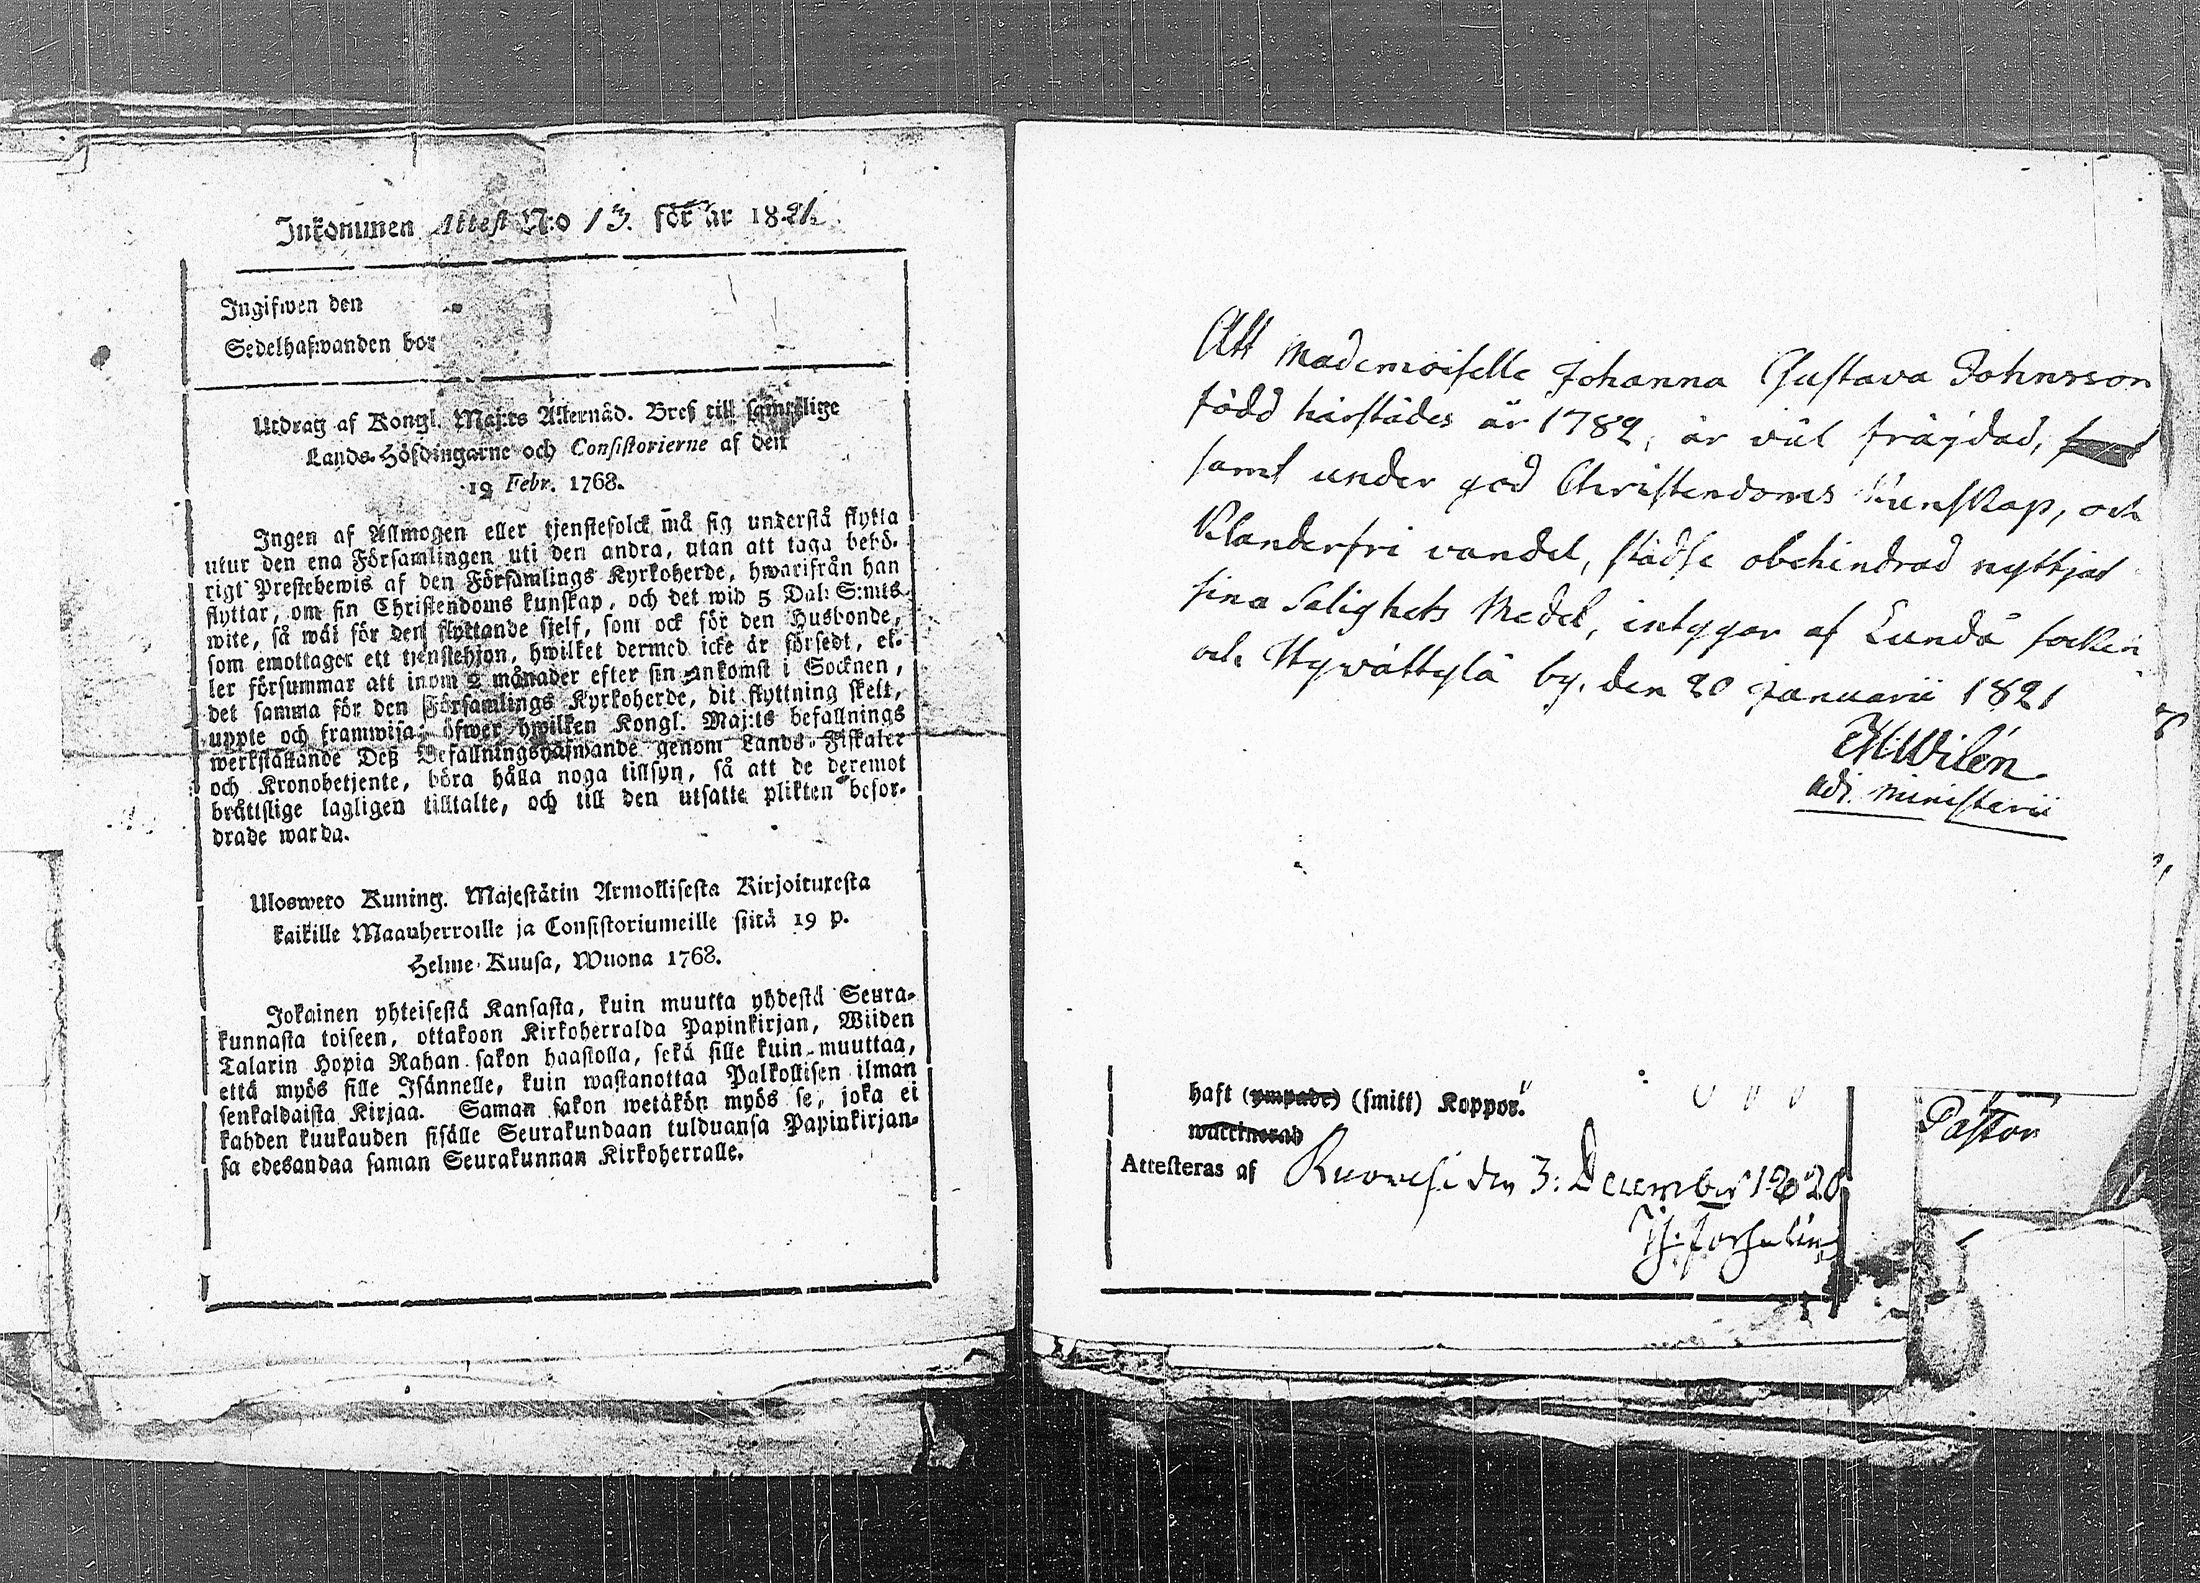 Inkommen Attest N:o 13. för år 1821.
Ingifwen den
Sedelhafwanden bor
Utdrag af Kongl. Maj:ts Allernåd. Bref till samtlige
Lands-Höfdingarne och Consistorierne af den
19 Febr. 1768.
Ingen af Allmogen eller tjenstefolck må sig understå flytta
utur den ena Församlingen uti den andra, utan att taga behö-
rigt Prestebewis af den Församlings Kyrkoherde, hwarifrån han
flyttar, om sin Christendoms kunskap, och det wid 5 Dal: S:mts
wite, så wäl för den flyttande sjelf, som ock för den Husbonde,
som emottager ett tjenstehjon, hwilket dermed icke är försedt, el-
ler försummar att inom 2 månader efter sin ankomst i Socknen,
det samma för den Församlings Kyrkoherde, dit flyttning skett,
uppte och framwisa; öfwer hwilken Kongl. Maj:ts befallnings
werkställande Deß Befallningshafwande genom Lands-Fiskaler
och Kronobetjente, böra hålla noga tillsyn, så att de deremot
brättslige lagligen tilltalte, och till den utsatta plikten befor-
drade warda.
Ulosweto Kuning. Majestätin Armollisesta Kirjoituxesta
kaikille Maanherroille ja Consistoriumeille siitä 19 p.
Helme-Kuusa, Wuona 1768.
Jokainen yhteisestä Kansasta, kuin muutta yhdestä Seura-
kunnasta toiseen, ottakoon Kirkoherralda Papinkirjan, Wiiden
Talarin Hopia Rahan sakon haastolla, sekä sille kuin muuttaa,
että myös sille Isännelle, kuin wastanottaa Palkollisen ilman
senkaldaista Kirjaa. Saman sakon wetäkön myös se, joka ei
kahden kuukauden sisälle Seurakundaan tulduansa Papinkirjan-
sa edesandaa saman Seurakunnan Kirkoherralle.
Att Mademoiselle Johanna Gustava Johnsson
född härstädes år 1782, är väl frägdad,
samt under god Christendoms Kunskap, och
Klanderfri vandel, städse obehindrad nyttjat
sina Salighets Medel, intygar af Lundå socken
och Hyvättylä by, den 20 Januarii 1821
Wilén
adj. Ministerii
haft (ympade) (smitt) Koppor.
waccinerad
Attesteras af Ruovesi den 3: December 1820
Pastor